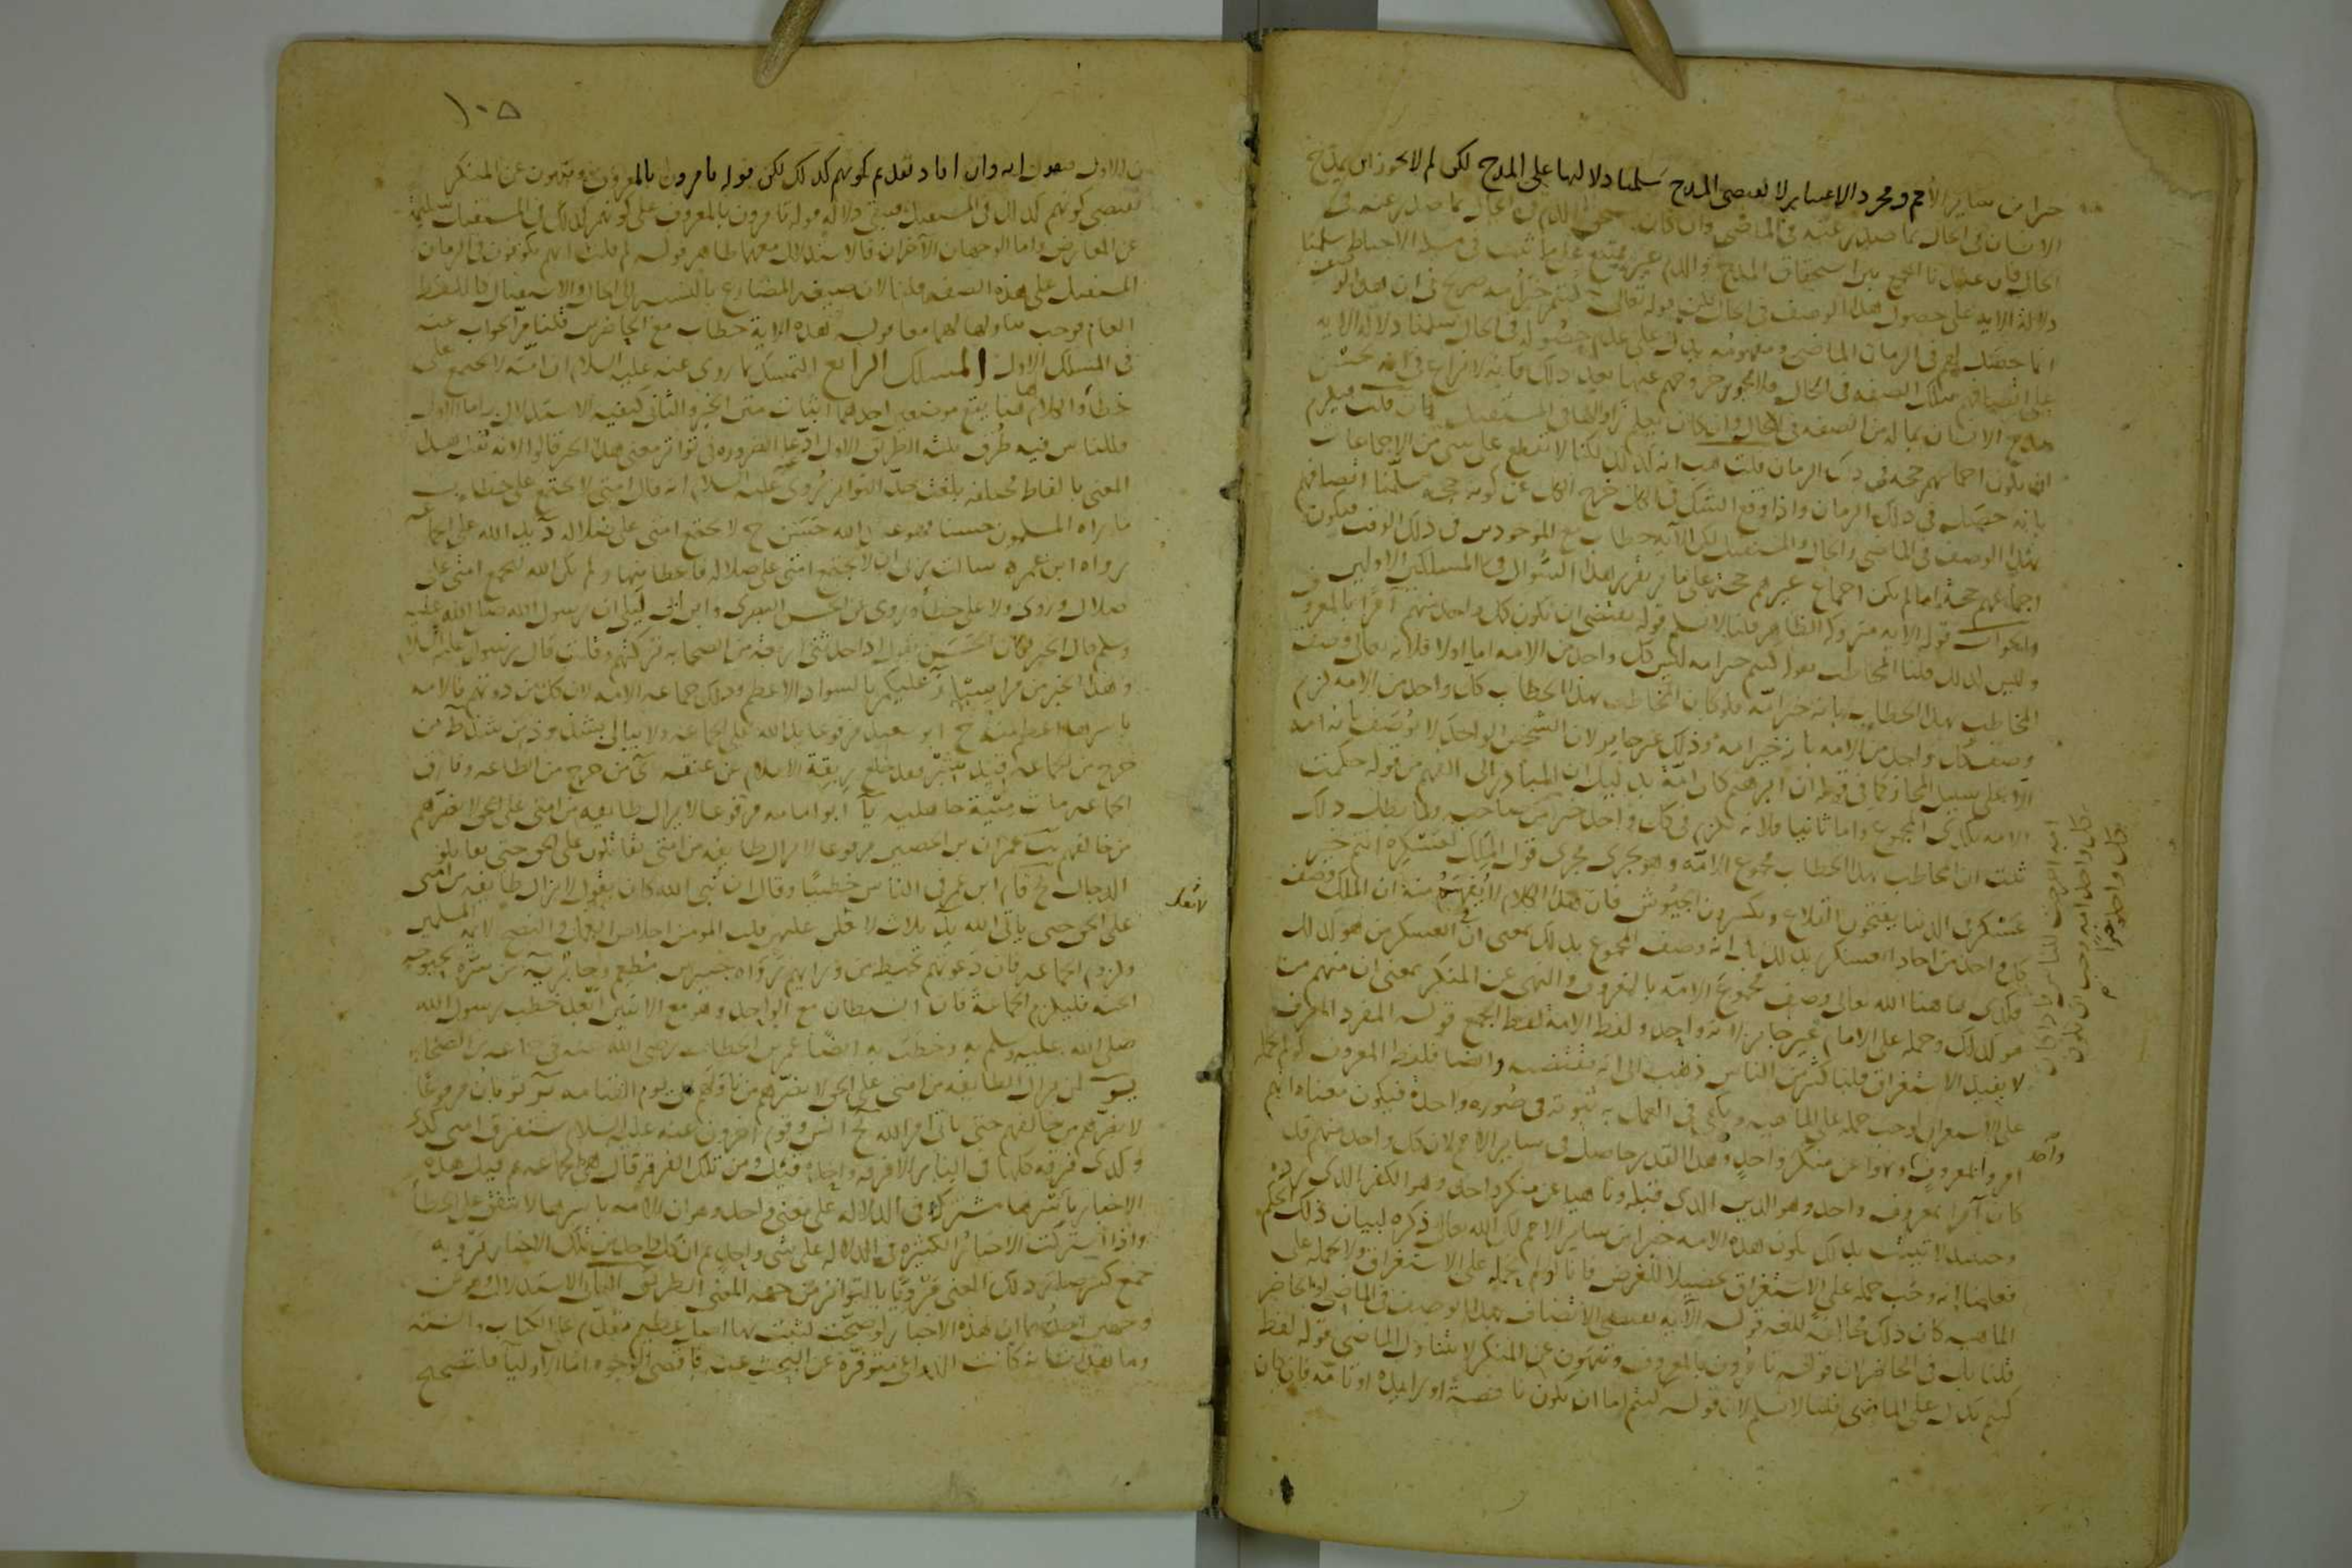 خيرا من ساير الأمم ومجرد الاخبار لا يقتضى المدح سلمنا دلالتها على المدح لكن لم لا يجوز ان يمدح
الانسان فى الحال بما صدر عنه فى الماضى وان كان يستحق الذم فى الحال بما صدر عنه فى
الحال فان عندنا الجمع بين استحقاق المدح والذم غير ممتنع على ما ثبت فى مسلة الاحباط سلمنا
دلالة الاية على حصول هذا الوصف فى الحال لكن قوله تعالى كنتم خير امة صريح فى ان هذا الوصف
انما حصل لهم فى الزمان الماضى ومفهومه يدل على عدم حصوله فى الحال سلمنا دلالة الاية
على اتصافهم بتلك الصفه فى الحال فلم لا يجوز خروجهم عنها بعد ذلك فانه لا نزاع فى انه يحسن
مدح الانسان بما له من الصفه فى الحال وان كان يعلم زوالها فى المستقبل فان قلت فيلزم
ان يكون اجماعهم حجه فى ذلك الزمان قلت هب انه كذلك لكنا لا نقطع على شى من الاجماعات
بانه حصل فى ذلك الزمان واذا وقع الشك فى الكل خرج الكل عن كونه حجه سلمنا اتصافهم
بهذا الوصف فى الماضى والحال والمستقبل لكن الآية خطاب مع الموجودين فى ذلك الوقت فيكون
اجماعهم حجة اما لم يكن اجماع غيرهم حجة على ما مر تقرير هذا السؤال فى المسلكين الاولين
والجواب قوله الايه متروكه الظاهر قلنا لا نسلم قوله يقتضى ان يكون كل واحد منهم آمرا بالمعروف
وليس كذلك قلنا المخاطب بقوله كنتم خير امه ليس كل واحد من الامه اما اولا فلانه تعالى وصف
المخاطب بهذا الخطاب بانه خير امة فلو كان المخاطب بهذا الخطاب كل واحد من الامه لزم
وصف كل واحد من الامه بانه خير امه وذلك غير جايز لان الشخص الواحد لا يوصف بانه امه
الا على سبيل المجاز كما فى قوله ان ابرهيم كان امة بدليل ان المتبادر الى الفهم من قوله حكمت
الامه بكذى المجموع واما ثانيا فلانه يلزم فى كل واحد خير من صاحبه ولما بطل ذلك
ثبت ان المخاطب بهذا الخطاب مجموع الامة وهو يجرى مجرى قول الملك لعسكره انتم خير
عسكر فى الدنيا يفتحون القلاع ويكسرون الجيوش فان هذا الكلام لا يفهم منه ان الملك وصف
كل واحد من احاد العسكر بذلك بل انه وصف المجموع بذلك بمعنى ان فى العسكر من هو كذلك
فكذى هاهنا الله تعالى وصف مجموع الامة بالمعروف والنهى عن المنكر بمعنى ان منهم من
هو كذلك وحمله على الامام غير جايز لانه واحد ولفظ الامه لفظ الجمع قوله المفرد المعرف
لا يفيد الاستغراق قلنا كثير من الناس ذهب الى انه يقتضيه وايضا فلفظ المعروف لو لم يحمله
على الاستغراق لوجب حمله على الماهيه ويكفى فى العمل به ثبوته فى صوره واحدة فيكون معناه انهم
امروا بمعروف ونهوا عن منكر واحد وهذا القدر حاصل فى ساير الامم لان كل واحد منهم قد
كان آمرا بمعروف واحد وهو الدين الذى قبله وناهيا عن منكر واحد وهو الكفر الذى رده
وحينيذ لا يثبت بذلك كون هذه الامه خيرا من ساير الامم لكن الله تعالى ذكره لبيان ذلك الحكم
فعلمنا انه وجب حمله على الاستغراق تحصيلا للغرض فانا لو لم نحمله على الاستغراق ولا نحمله على
الماهيه كان ذلك مخالفة للغه قوله الآية تقتضى الاتصاف بهذا الوصف فى الماضى او الحاضر
قلنا بل فى الحاضر لان قوله تامرون بالمعروف وتنهون عن المنكر لا يتناول الماضى قوله لفظ
كنتم يدل على الماضى قلنا لا نسلم لان قوله كنتم اما ان يكون ناقصة او زايدة او تامة فان كان
كل واحد خيرا
كل واحد امه وجب ان يكون
امه اخرجت للناس اذا كان
واحد
١٠٥
من الاول فهو انه وان افاد تقدم كونهم كذلك لكن قوله تامرون بالمعروف وتنهون عن المنكر
يقتضى كونهم كذلك فى المستقبل فيبقى دلاله قوله تامرون بالمعروف على كونهم كذلك فى المستقبل سليمة
عن المعارض واما الوجهان الآخران فالاستدلال معهما ظاهر قوله لم قلت انهم يكونون فى الزمان
المستقبل على هذه الصفه قلنا لان صيغه المضارع بالنسبه الى الحال والاستقبال كاللفظ
العام فوجب تناولها لهما معا قوله هذه الاية خطاب مع الحاضرين قلنا مر الجواب عنه
فى المسلك الاول المسلك الرابع التمسك بما روى عنه عليه السلام ان امته لا تجتمع على
خطأ والكلام هاهنا يقع موضعين احدهما اثبات متن الخبر والثانى كيفيه الاستدلال به اما الاول
فللناس فيه طرق ثلثه الطريق الاول ادعا الضروره فى تواتر معنى هذا الخبر قالوا لانه نقل هذا
المعنى بالفاظ مختلفه بلغت حد التواتر آ روى عليه السلام انه قال امتى لا تجتمع على خطا ب
ما راه المسلمون حسنا فهو عند الله حسن ج لا تجتمع امتى على ضلاله د يد الله على الجماعه
رواه ابن عمر ه سالت ربى ان لا تجتمع امتى على ضلاله فاعطانيها و لم يكن الله ليجمع امتى على
ضلال وروى ولا على خطأ وروى عن الحسن البصرى وابن ابى ليلى ان رسول الله صلى الله عليه
وسلم قال الخبر وكان الحسن يقول اذا حدثنى اربعه من الصحابه تركتهم وقلت قال رسول عليه السلام
وهذا الخبر من مراسيله ز عليكم بالسواد الاعظم وذلك جماعه الامه لان كل من دونهم فالامه
باسرها اعظم منه ح ابو سعيد مرفوعا يد الله على الجماعه ولا يبالى بشذوذ من شذ ط من
خرج من الجماعه قيد شبر فقد خلع ربقة الاسلام عن عنقه ى من خرج من الطاعه وفارق
الجماعه مات ميتة جاهليه يا ابو امامه مرفوعا لا يزال طايفه من امتى على الحق لا يضرهم
من خالفهم يب عمران بن الحصين مرفوعا لا يزال طايفه من امتى يقاتلون على الحق حتى يقاتلوا
الدجال يج قام ابن عمر فى الناس خطيبا وقال ان نبى الله كان يقول لا يزال طايفه من امتى
على الحق حتى ياتى الله يد ثلاث لا يغل عليهن قلب المومن اخلاص العمل والنصح لايمة المسلمين
ولزوم الجماعه فان دعوتهم تحيط من ورايهم رواه جبير بن مطعم وجابر يه من سره بحبوحه
الجنه فليلزم الجماعة فان الشيطان مع الواحد وهو مع الاثنين ابعد خطب رسول الله
صلى الله عليه وسلم به وخطب به ايضا عمر بن الخطاب رضى الله عنه فى جماعه من الصحابه
يو لن يزال طايفه من امتى على الحق لا يضرهم من ناواهم الى يوم القيامه يز ثوبان مرفوعا
لا يضرهم من خالفهم حتى ياتى امر الله يح انس وقوم اخرون عنه عليه السلام ستفرق امتى كذى
وكذى فرقه كلها فى النار الا فرقه واحدة قيل ومن تلك الفرقه قال هى الجماعه ثم قيل هذه
الاخبار باسرها مشتركة فى الدلاله على معنى واحد وهو ان الامه باسرها لا تتفق على الخطأ
واذا اشتركت الاخبار الكثيرة فى الدلاله على شى واحد ثم ان كل واحد من تلك الاخبار يرويه
جمع كثير صار ذلك المعنى مرويا بالتواتر من جهه المعنى الطريق الثانى الاستدلال وهو من
وجهين احدهما ان هذه الاخبار لو صحت لثبت بها اصل عظيم مقدم على الكتاب والسنه
وما هذا شانه كانت الدواعى متوفرة على البحث عنه باقصى الوجوه اما الاوليا فلتصحيح